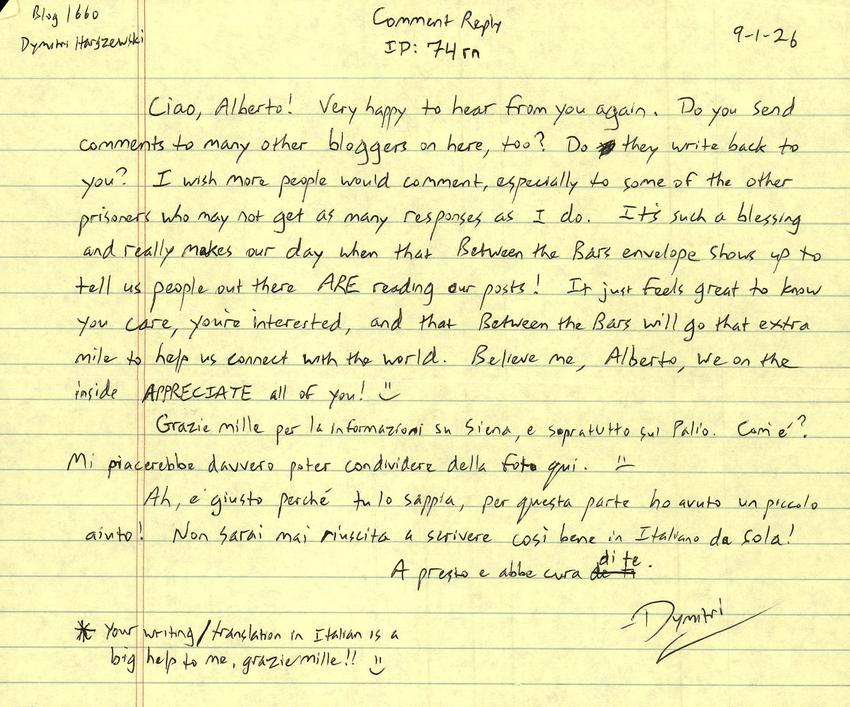 Blog 1660
Dymitri Harszewski
Comment Reply
ID: 74rn
9-1-26
Ciao, Alberto! Very happy to hear from you again. Do you send
comments to many other bloggers on here, too? Do they write back to
you? I wish more people would comment, especially to some of the other
prisoners who may not get as many responses as I do. It's such a blessing
and really makes our day when that Between the Bars envelope shows up to
tell us people out there ARE reading our posts! It just feels great to know
you care, you're interested, and that Between the Bars will go that extra
mile to help us connect with the world. Believe me, Alberto, we on the
inside APPRECIATE all of you! :)
Grazie mille per la informazioni su Siena, e sopratutto sul Palio. Com'é?
Mi piacerebbe davvero poter condividere della foto qui. :)
Ah, e' giusto perché tu lo sappia, per questa parte ho avuto un piccolo
aiuto! Non sarai mai riuscita a scrivere così bene in Italiano da sola!
A presto e abbe cura di te.
Dymitri
* Your writing/translation in Italian is a
big help to me, grazie mille!! :)